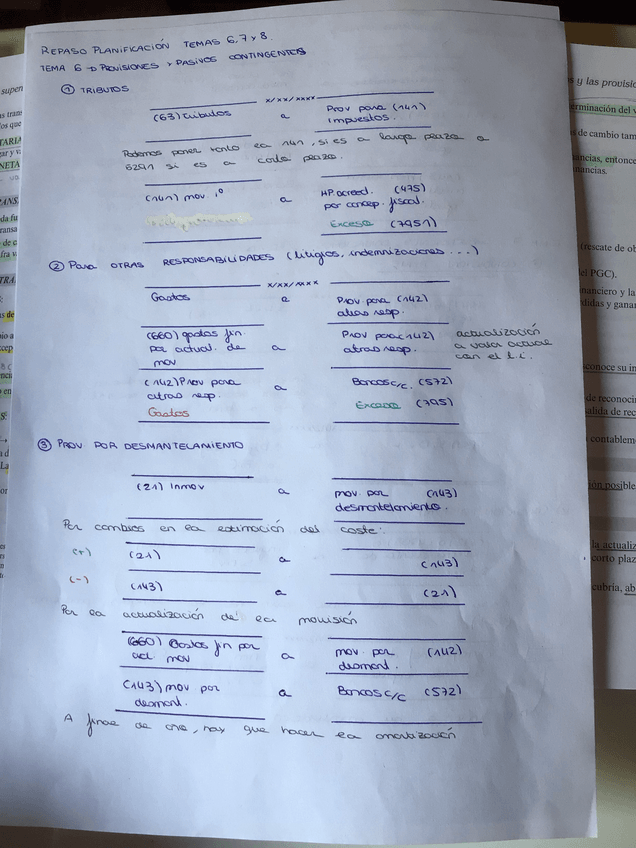 REPASO PLANIFICACIÓN TEMAS 6, 7 y 8.
TEMA 6 → PROVISIONES y PASIVOS CONTINGENTES
① TRIBUTOS
x/xx/xxxx
(63) tributos a Prov para (141)
impuestos.
Podemos poner tanto la 141, si es a largo plazo o
5291 si es a corto plazo.
(141) prov. iº a HP acreed. (475)
por concep. fiscal.
Exceso (7951)
② Para OTRAS RESPONSABILIDADES (litigios, indemnizaciones...)
x/xx/xxxx
Gastos a Prov. para (142)
otras resp.
(660) gastos fin. a Prov para (142) actualización
por actual. de otras resp. a valor actual
prov con el t.i.
(142) Prov para a Bancos c/c. (572)
otras resp. Exceso (795)
Gastos
③ PROV POR DESMANTELAMIENTO
(21) Inmov a prov. por (143)
desmantelamiento.
Por cambios en la estimación del coste:
(+) (21) a (143)
(-) (143) a (21)
Por la actualización de la provisión
(660) Gastos fin por a prov. por (142)
act. prov desmont.
(143) prov por a Bancos c/c (572)
desmont.
A final de año, hay que hacer la amortización
super
y las provisio
erminación del v
de cambio tam
nancias, entonce
nancias.
(rescate de ob
el PGC).
nanciero y la
didas y ganan
conoce su in
de reconoci
salida de rec
contablem
ión posible
la actualiz
corto plaz
cubría, ab